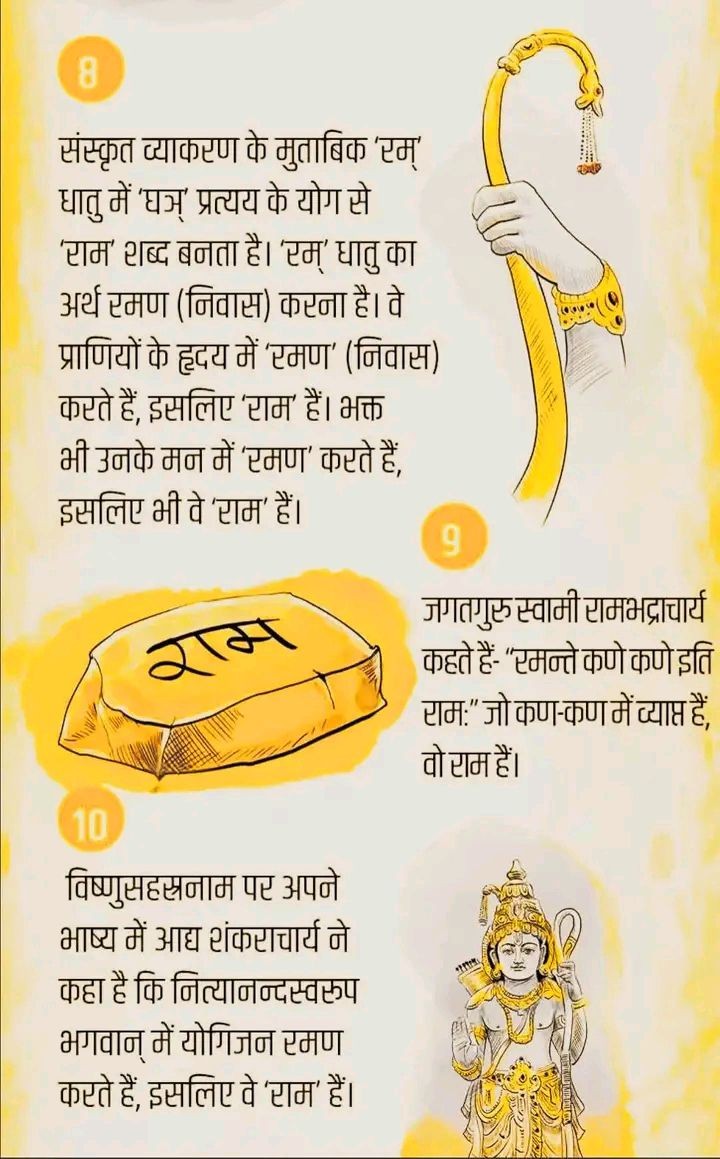 8
संस्कृत व्याकरण के मुताबिक ‘रम्’
धातु में ‘घञ्’ प्रत्यय के योग से
‘राम’ शब्द बनता है। ‘रम्’ धातु का
अर्थ रमण (निवास) करना है। वे
प्राणियों के हृदय में ‘रमण’ (निवास)
करते हैं, इसलिए ‘राम’ हैं। भक्त
भी उनके मन में ‘रमण’ करते हैं,
इसलिए भी वे ‘राम’ हैं।
राम
9
जगतगुरु स्वामी रामभद्राचार्य
कहते हैं- “रमन्ते कणे कणे इति
रामः” जो कण-कण में व्याप्त हैं,
वो राम हैं।
10
विष्णुसहस्रनाम पर अपने
भाष्य में आद्य शंकराचार्य ने
कहा है कि नित्यानन्दस्वरुप
भगवान् में योगिजन रमण
करते हैं, इसलिए वे ‘राम’ हैं।